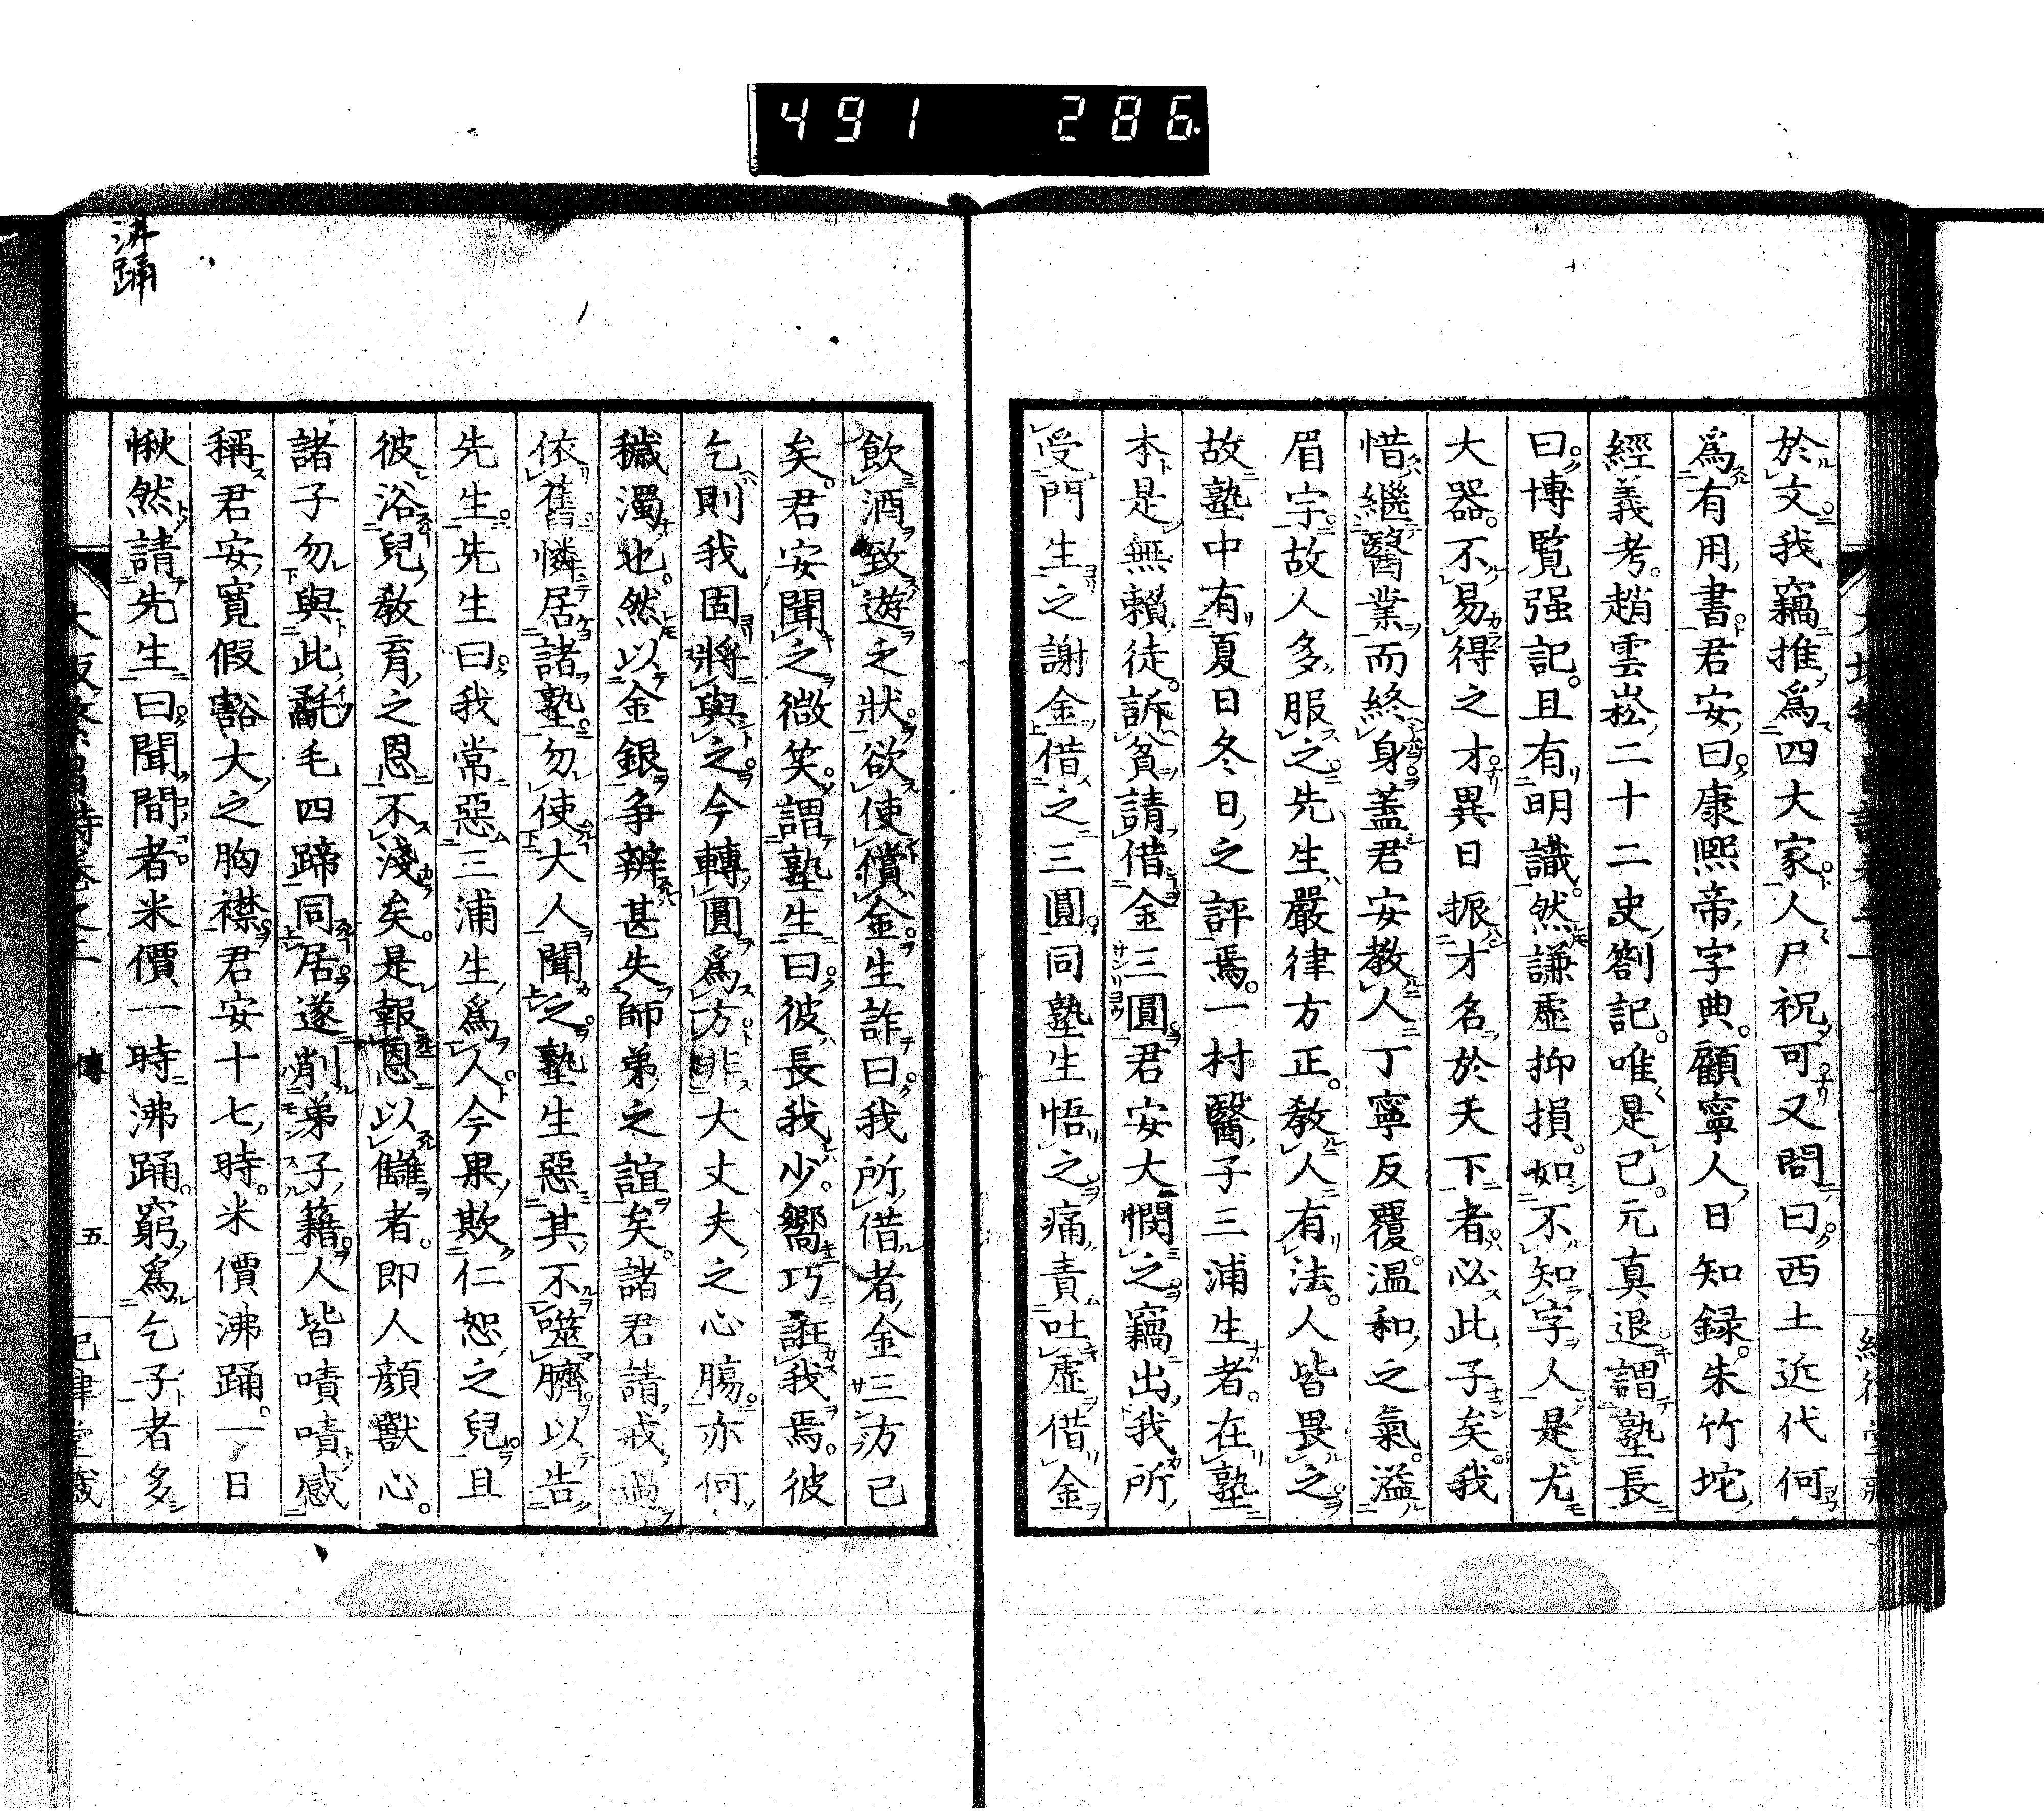 491 286
於文我竊推為四大家人尸祝可又問曰西土近代何
為有用書君安曰康熙帝字典顧寧人日知録朱竹坨
經義考趙雲崧二十二史劄記唯是已元真退謂塾長
曰博覧强記且有明識然謙虛抑損如不知字人是尤
大器不易得之才異日振才名於天下者必此子矣我
惜繼醫業而終身蓋君安教人丁寧反覆溫和之氣溢
眉宇故人多服之先生嚴律方正教人有法人皆畏之
故塾中有夏日冬日之評焉一村醫子三浦生者在塾
本是無賴徒訴貧請借金三圓君安大憫之竊出我所
受門生之謝金借之三圓同塾生悟之痛責吐虛借金
飲酒致遊之狀欲使償金生詐曰我所借者金三方已
矣君安聞之微笑謂塾生曰彼長我少嚮巧誑我焉彼
乞則我固將與之今轉圓為方非大丈夫之心膓亦何
穢濁也然以金銀争辨甚失師弟之誼矣諸君請戒過
依舊憐居諸塾勿使大人聞之塾生惡其不噬臍以告
先生先生曰我常惡三浦生為人今果欺仁恕之兒且
彼浴兒教育之恩不淺矣是報恩以讎者即人顔獸心
諸子勿與此毛四蹄同居遂削弟子籍人皆嘖嘖感
稱君安寬假豁大之胸襟君安十七時米價沸踊一日
愀然請先生曰聞間者米價一時沸踊窮為乞子者多
傳 五
沸踊